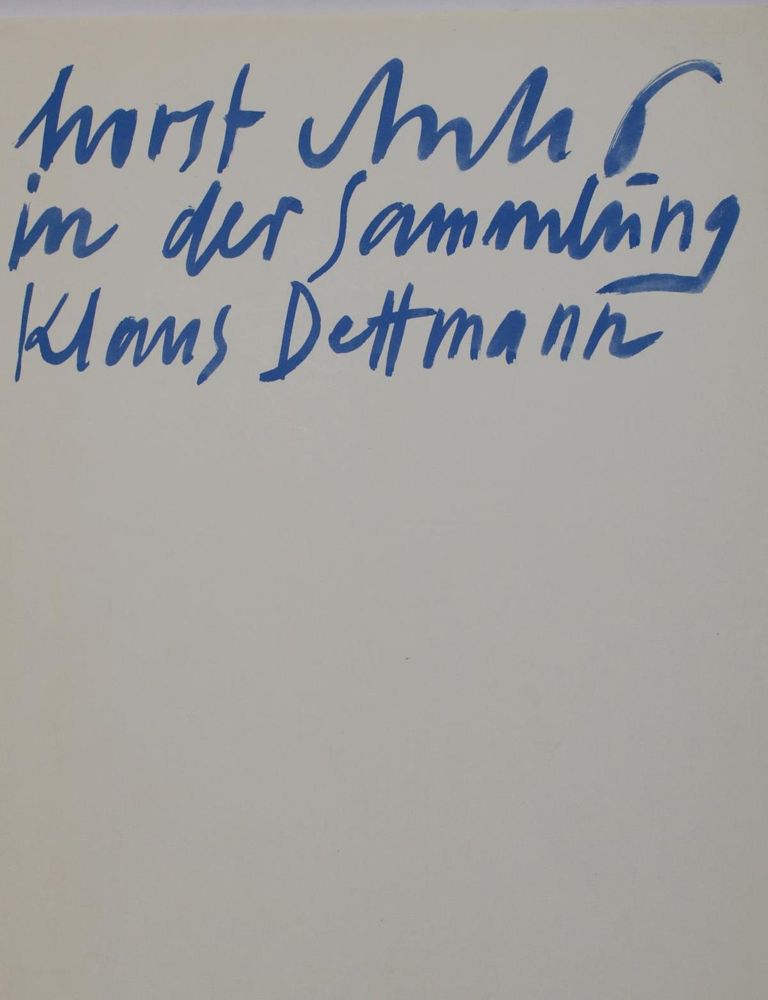 horst Antes
in der Sammlung
Klaus Dettmann